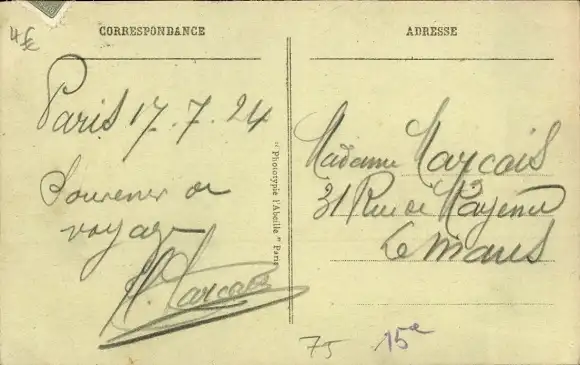 4€
CORRESPONDANCE
Paris 17.7.24
Souvenir de
voyage
Marcais
"Phototypie l'Abeille" Paris
ADRESSE
Madame Marcais
31 Rue de Mayenne
Le Mans
75 15e